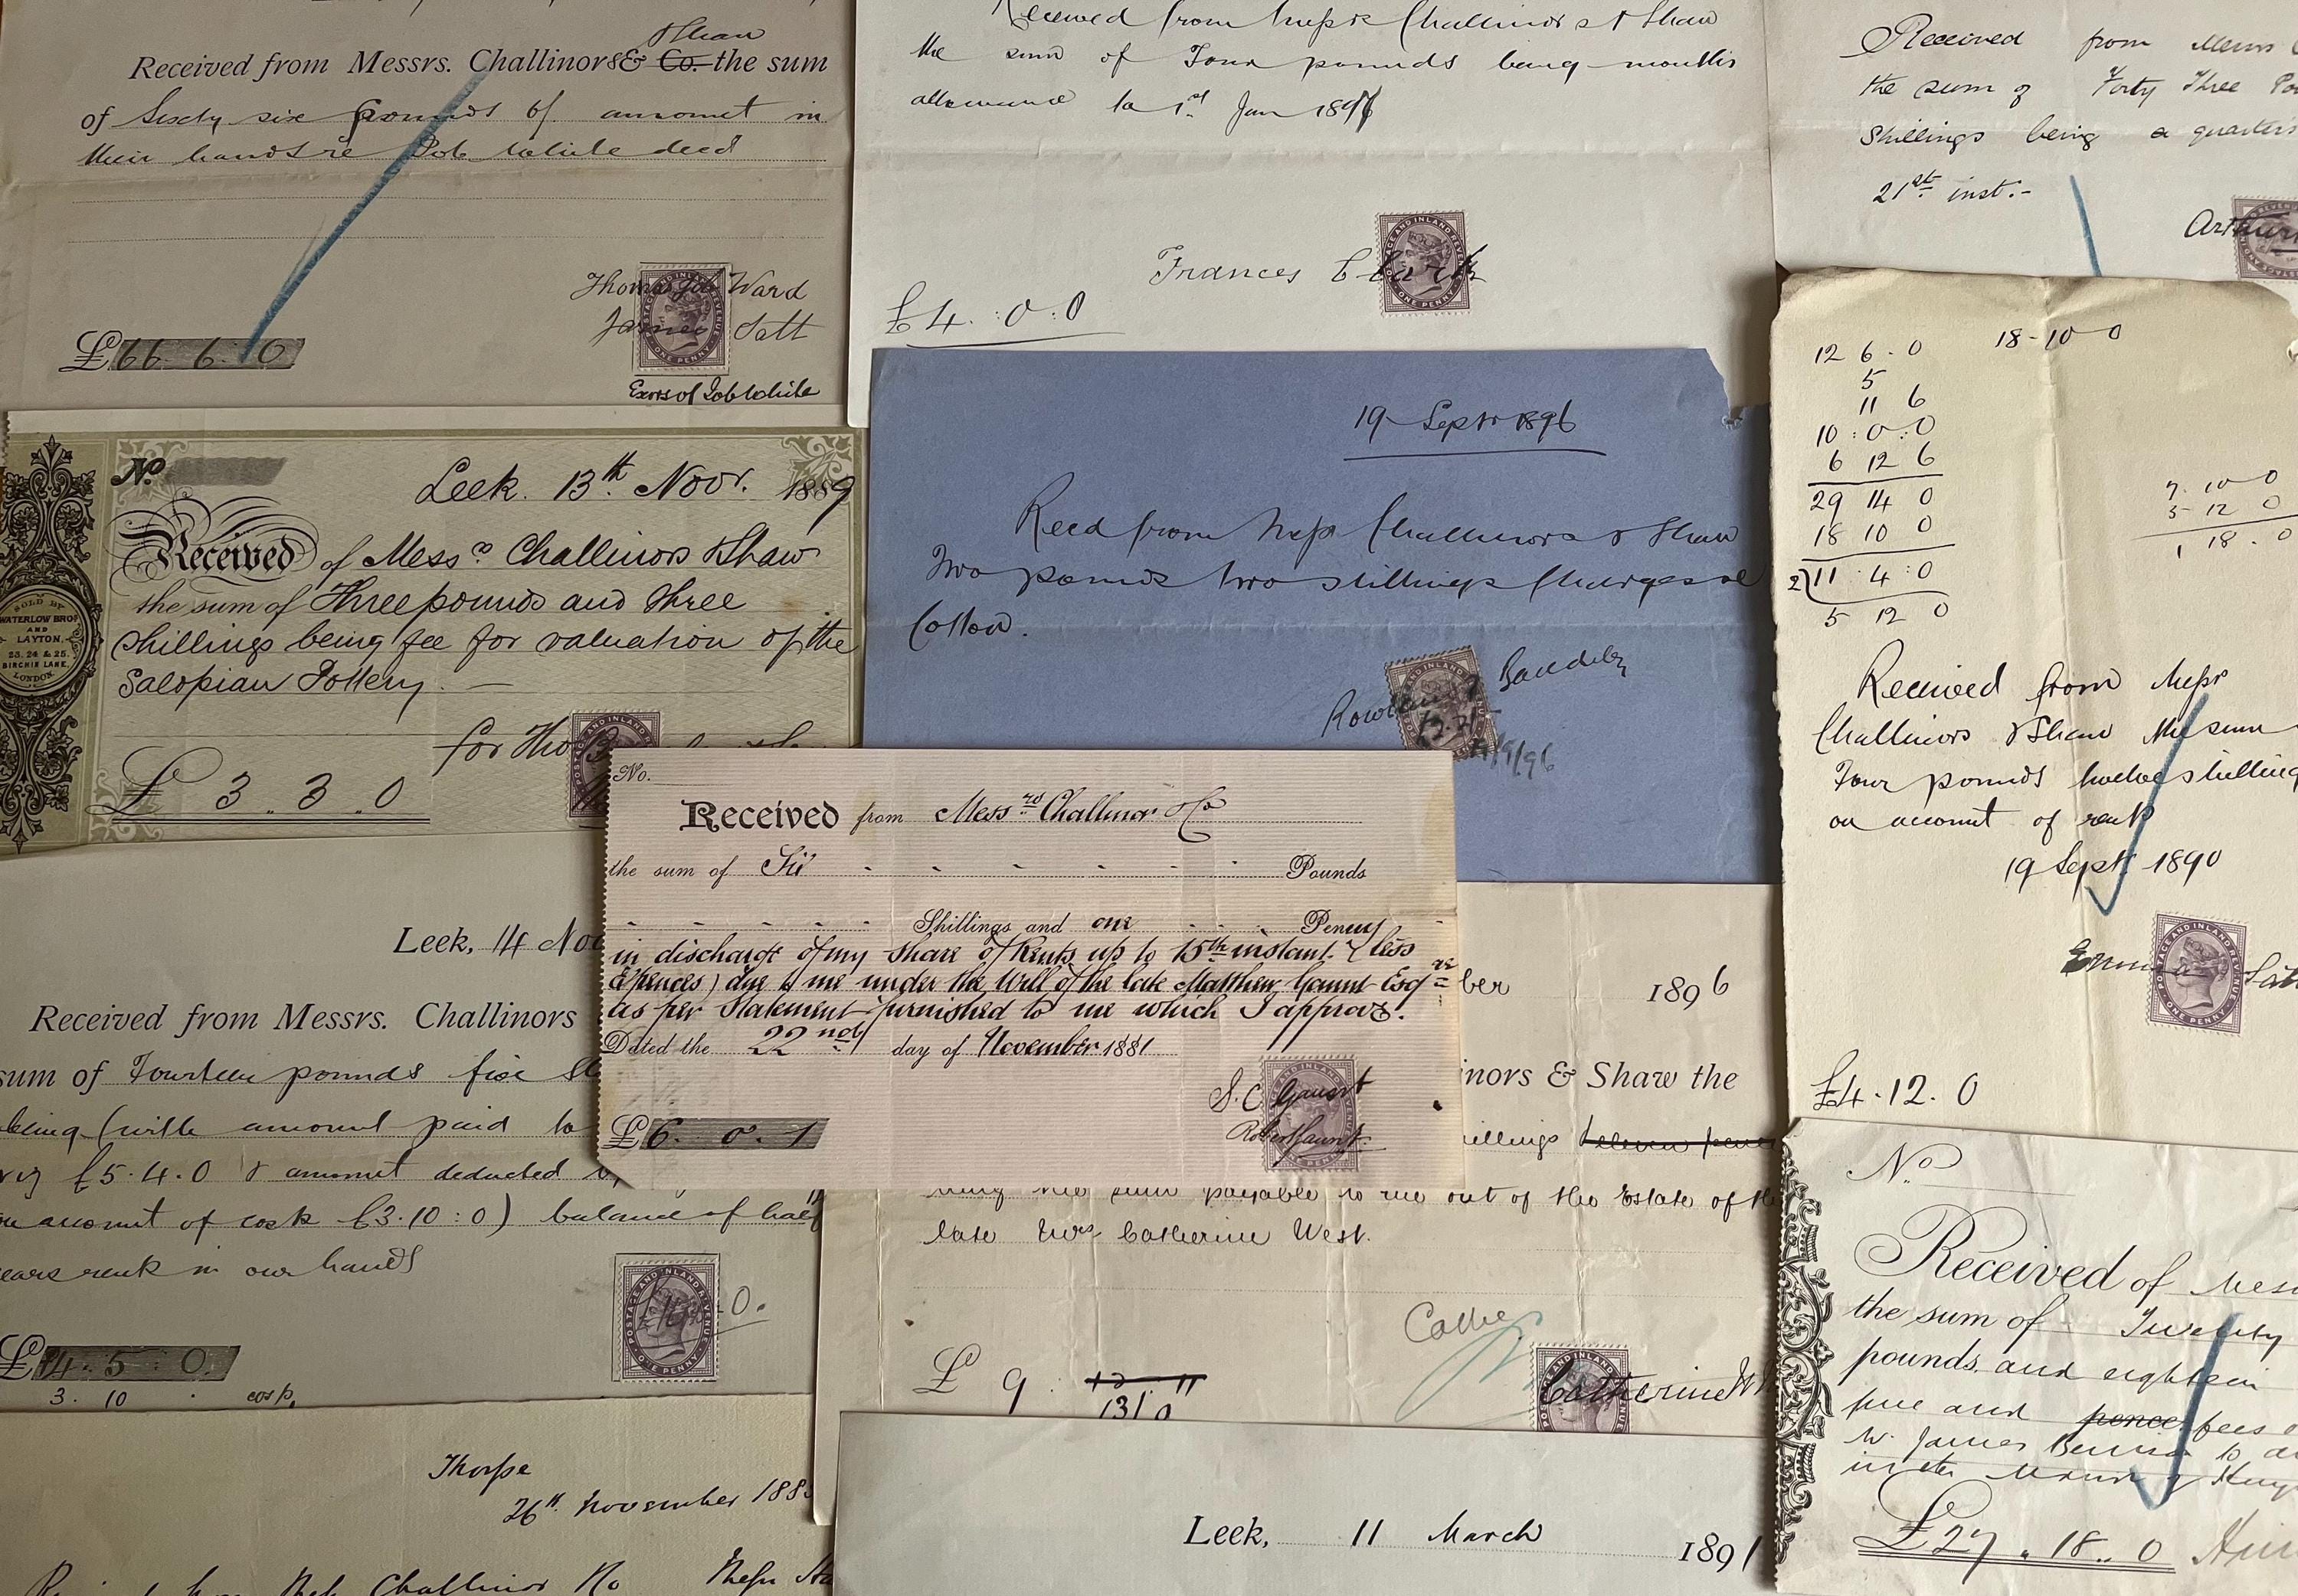 Shaw
Received from Messrs. Challinors & Co. the sum
of Sixty six pounds 6/ amount in
their hands re Job White decd
Thomas Job Ward
James Salt
£66 6 : 0
Exors of Job White
Received from Messrs Challinors & Shaw
the sum of Four pounds being months
allowance to 1st Jan 1896
Frances Clark
£4 : 0 : 0
Received from Messrs
the sum of Forty Three
Shillings being a quarter's
21st inst:-
Arthur
No.
Leek. 13th Novr. 1889
Received of Messrs Challinors & Shaw
the sum of Three pounds and three
shillings being fee for valuation of the
Salopian Pottery. —
for Tho
£ 3 .. 3 .. 0
SOLD BY
WATERLOW BROS
AND
LAYTON,
23, 24 & 25,
BIRCHIN LANE,
LONDON.
19 Septr 1896
Recd from Messrs Challinors & Shaw
Two pounds two shillings Charges re
Cotton.
12 6 . 0
5
11 6
10 : 0 : 0
6 12 6
29 14 0
18 10 0
2)11 : 4 : 0
5 12 0
18-10 0
7. 10 0
5 - 12 0
1 18 . 0
Received from Messrs
Challinors & Shaw the sum
Four pounds twelve shillings
on account of rent
19 Sept 1890
Emma
£4 . 12 . 0
No.
Received from Messrs Challinor & Co
the sum of Six Pounds
Shillings and one Penny
in discharge of my share of Rents up to 15th instant. (less
Expences) due to me under the Will of the late Matthew Gaunt Esqre
as per Statement furnished to me which I approve.
Dated the 22nd day of November 1881
S. C. Gaunt
Robert Gaunt
£6 . 0 . 1
Leek, 14 Nov
Received from Messrs. Challinors
sum of Fourteen pounds five
being (with amount paid to
£5 . 4 . 0 & amount deducted
on account of costs £3 . 10 : 0) balance of half
years rent in our hands
£14 . 5 : 0 .
3 . 10 . costs
ber 1896
inors & Shaw the
illings eleven pence
being the sum payable to me out of the Estate of the
late Mrs. Catherine West.
£ 9 : 12 11
13 / 0
Catherine
Thorpe
26th November 188
Challinor & Co
Leek, 11 March 1891
No
Received of Mess
the sum of Twenty
pounds and eighteen
pence fees
James
in the Manor of
£27 .. 18 .. 0
POSTAGE AND INLAND REVENUE
ONE PENNY